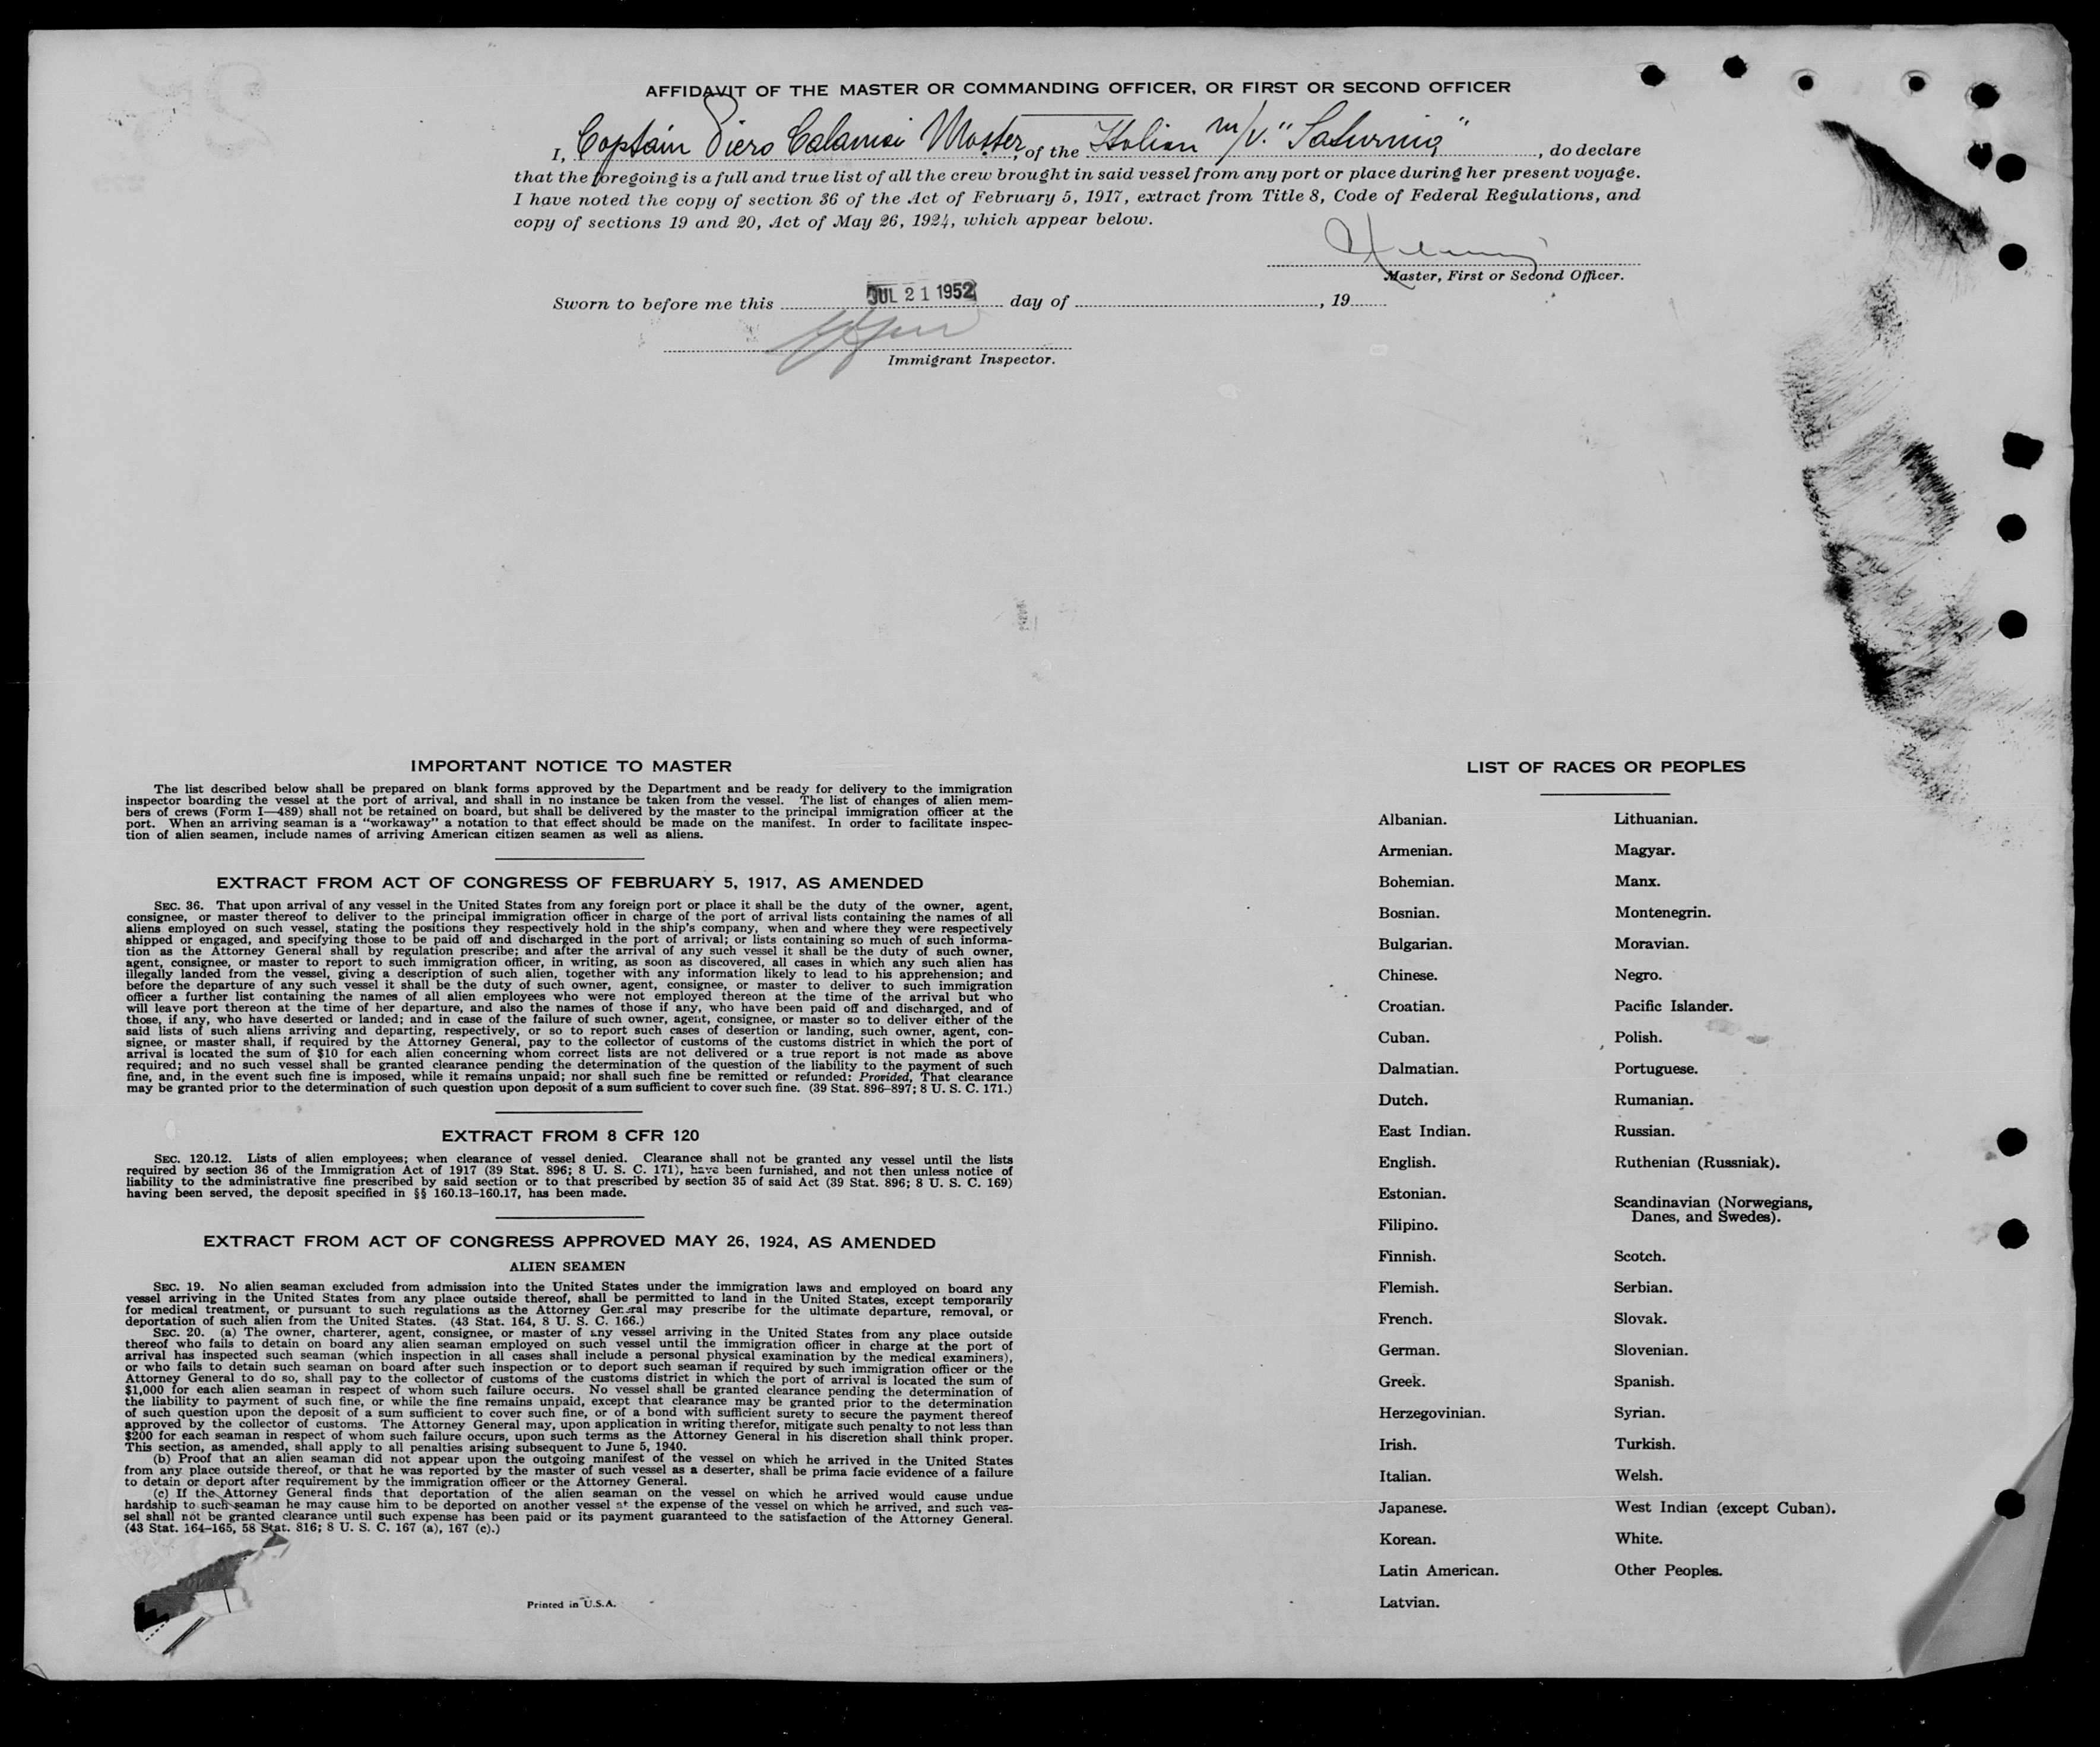 AFFIDAVIT OF THE MASTER OR COMMANDING OFFICER, OR FIRST OR SECOND OFFICER
I, Captain Piero Calamai Master, of the Italian m/v. "Saturnia", do declare
that the foregoing is a full and true list of all the crew brought in said vessel from any port or place during her present voyage.
I have noted the copy of section 36 of the Act of February 5, 1917, extract from Title 8, Code of Federal Regulations, and
copy of sections 19 and 20, Act of May 26, 1924, which appear below.
Master, First or Second Officer.
Sworn to before me this JUL 21 1952 day of , 19
Immigrant Inspector.
IMPORTANT NOTICE TO MASTER
The list described below shall be prepared on blank forms approved by the Department and be ready for delivery to the immigration
inspector boarding the vessel at the port of arrival, and shall in no instance be taken from the vessel. The list of changes of alien mem-
bers of crews (Form I—489) shall not be retained on board, but shall be delivered by the master to the principal immigration officer at the
port. When an arriving seaman is a "workaway" a notation to that effect should be made on the manifest. In order to facilitate inspec-
tion of alien seamen, include names of arriving American citizen seamen as well as aliens.
EXTRACT FROM ACT OF CONGRESS OF FEBRUARY 5, 1917, AS AMENDED
SEC. 36. That upon arrival of any vessel in the United States from any foreign port or place it shall be the duty of the owner, agent,
consignee, or master thereof to deliver to the principal immigration officer in charge of the port of arrival lists containing the names of all
aliens employed on such vessel, stating the positions they respectively hold in the ship's company, when and where they were respectively
shipped or engaged, and specifying those to be paid off and discharged in the port of arrival; or lists containing so much of such informa-
tion as the Attorney General shall by regulation prescribe; and after the arrival of any such vessel it shall be the duty of such owner,
agent, consignee, or master to report to such immigration officer, in writing, as soon as discovered, all cases in which any such alien has
illegally landed from the vessel, giving a description of such alien, together with any information likely to lead to his apprehension; and
before the departure of any such vessel it shall be the duty of such owner, agent, consignee, or master to deliver to such immigration
officer a further list containing the names of all alien employees who were not employed thereon at the time of the arrival but who
will leave port thereon at the time of her departure, and also the names of those if any, who have been paid off and discharged, and of
those, if any, who have deserted or landed; and in case of the failure of such owner, agent, consignee, or master so to deliver either of the
said lists of such aliens arriving and departing, respectively, or so to report such cases of desertion or landing, such owner, agent, con-
signee, or master shall, if required by the Attorney General, pay to the collector of customs of the customs district in which the port of
arrival is located the sum of $10 for each alien concerning whom correct lists are not delivered or a true report is not made as above
required; and no such vessel shall be granted clearance pending the determination of the question of the liability to the payment of such
fine, and, in the event such fine is imposed, while it remains unpaid; nor shall such fine be remitted or refunded: Provided, That clearance
may be granted prior to the determination of such question upon deposit of a sum sufficient to cover such fine. (39 Stat. 896–897; 8 U. S. C. 171.)
EXTRACT FROM 8 CFR 120
SEC. 120.12. Lists of alien employees; when clearance of vessel denied. Clearance shall not be granted any vessel until the lists
required by section 36 of the Immigration Act of 1917 (39 Stat. 896; 8 U. S. C. 171), have been furnished, and not then unless notice of
liability to the administrative fine prescribed by said section or to that prescribed by section 35 of said Act (39 Stat. 896; 8 U. S. C. 169)
having been served, the deposit specified in §§ 160.13–160.17, has been made.
EXTRACT FROM ACT OF CONGRESS APPROVED MAY 26, 1924, AS AMENDED
ALIEN SEAMEN
SEC. 19. No alien seaman excluded from admission into the United States under the immigration laws and employed on board any
vessel arriving in the United States from any place outside thereof, shall be permitted to land in the United States, except temporarily
for medical treatment, or pursuant to such regulations as the Attorney General may prescribe for the ultimate departure, removal, or
deportation of such alien from the United States. (43 Stat. 164, 8 U. S. C. 166.)
SEC. 20. (a) The owner, charterer, agent, consignee, or master of any vessel arriving in the United States from any place outside
thereof who fails to detain on board any alien seaman employed on such vessel until the immigration officer in charge at the port of
arrival has inspected such seaman (which inspection in all cases shall include a personal physical examination by the medical examiners),
or who fails to detain such seaman on board after such inspection or to deport such seaman if required by such immigration officer or the
Attorney General to do so, shall pay to the collector of customs of the customs district in which the port of arrival is located the sum of
$1,000 for each alien seaman in respect of whom such failure occurs. No vessel shall be granted clearance pending the determination of
the liability to payment of such fine, or while the fine remains unpaid, except that clearance may be granted prior to the determination
of such question upon the deposit of a sum sufficient to cover such fine, or of a bond with sufficient surety to secure the payment thereof
approved by the collector of customs. The Attorney General may, upon application in writing therefor, mitigate such penalty to not less than
$200 for each seaman in respect of whom such failure occurs, upon such terms as the Attorney General in his discretion shall think proper.
This section, as amended, shall apply to all penalties arising subsequent to June 5, 1940.
(b) Proof that an alien seaman did not appear upon the outgoing manifest of the vessel on which he arrived in the United States
from any place outside thereof, or that he was reported by the master of such vessel as a deserter, shall be prima facie evidence of a failure
to detain or deport after requirement by the immigration officer or the Attorney General.
(c) If the Attorney General finds that deportation of the alien seaman on the vessel on which he arrived would cause undue
hardship to such seaman he may cause him to be deported on another vessel at the expense of the vessel on which he arrived, and such ves-
sel shall not be granted clearance until such expense has been paid or its payment guaranteed to the satisfaction of the Attorney General.
(43 Stat. 164–165, 58 Stat. 816; 8 U. S. C. 167 (a), 167 (c).)
Printed in U.S.A.
LIST OF RACES OR PEOPLES
Albanian.
Armenian.
Bohemian.
Bosnian.
Bulgarian.
Chinese.
Croatian.
Cuban.
Dalmatian.
Dutch.
East Indian.
English.
Estonian.
Filipino.
Finnish.
Flemish.
French.
German.
Greek.
Herzegovinian.
Irish.
Italian.
Japanese.
Korean.
Latin American.
Latvian.
Lithuanian.
Magyar.
Manx.
Montenegrin.
Moravian.
Negro.
Pacific Islander.
Polish.
Portuguese.
Rumanian.
Russian.
Ruthenian (Russniak).
Scandinavian (Norwegians,
Danes, and Swedes).
Scotch.
Serbian.
Slovak.
Slovenian.
Spanish.
Syrian.
Turkish.
Welsh.
West Indian (except Cuban).
White.
Other Peoples.